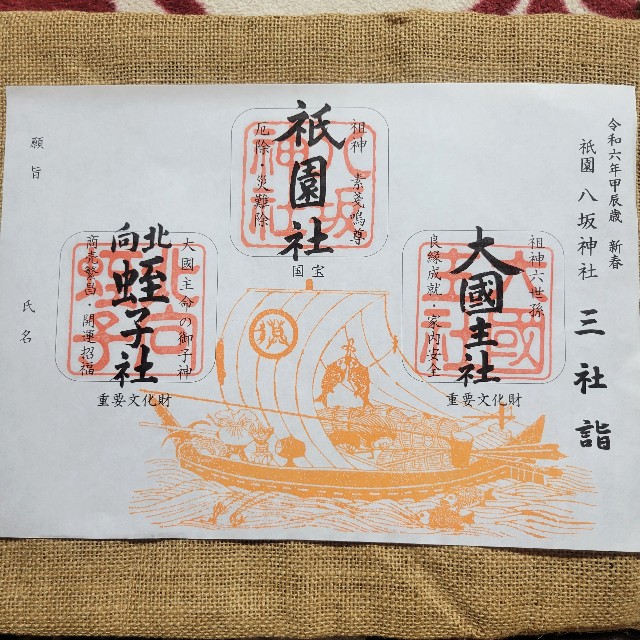 令和六年甲辰歳 新春
祇園 八坂神社 三社詣
祖神 素戔嗚尊
祇園社
厄除・災難除
八坂神社
国宝
祖神六世孫
大國主社
良縁成就・家内安全
大國主社
重要文化財
大國主命の御子神
北向蛭子社
商売繁昌・開運招福
重要文化財
願旨
氏名